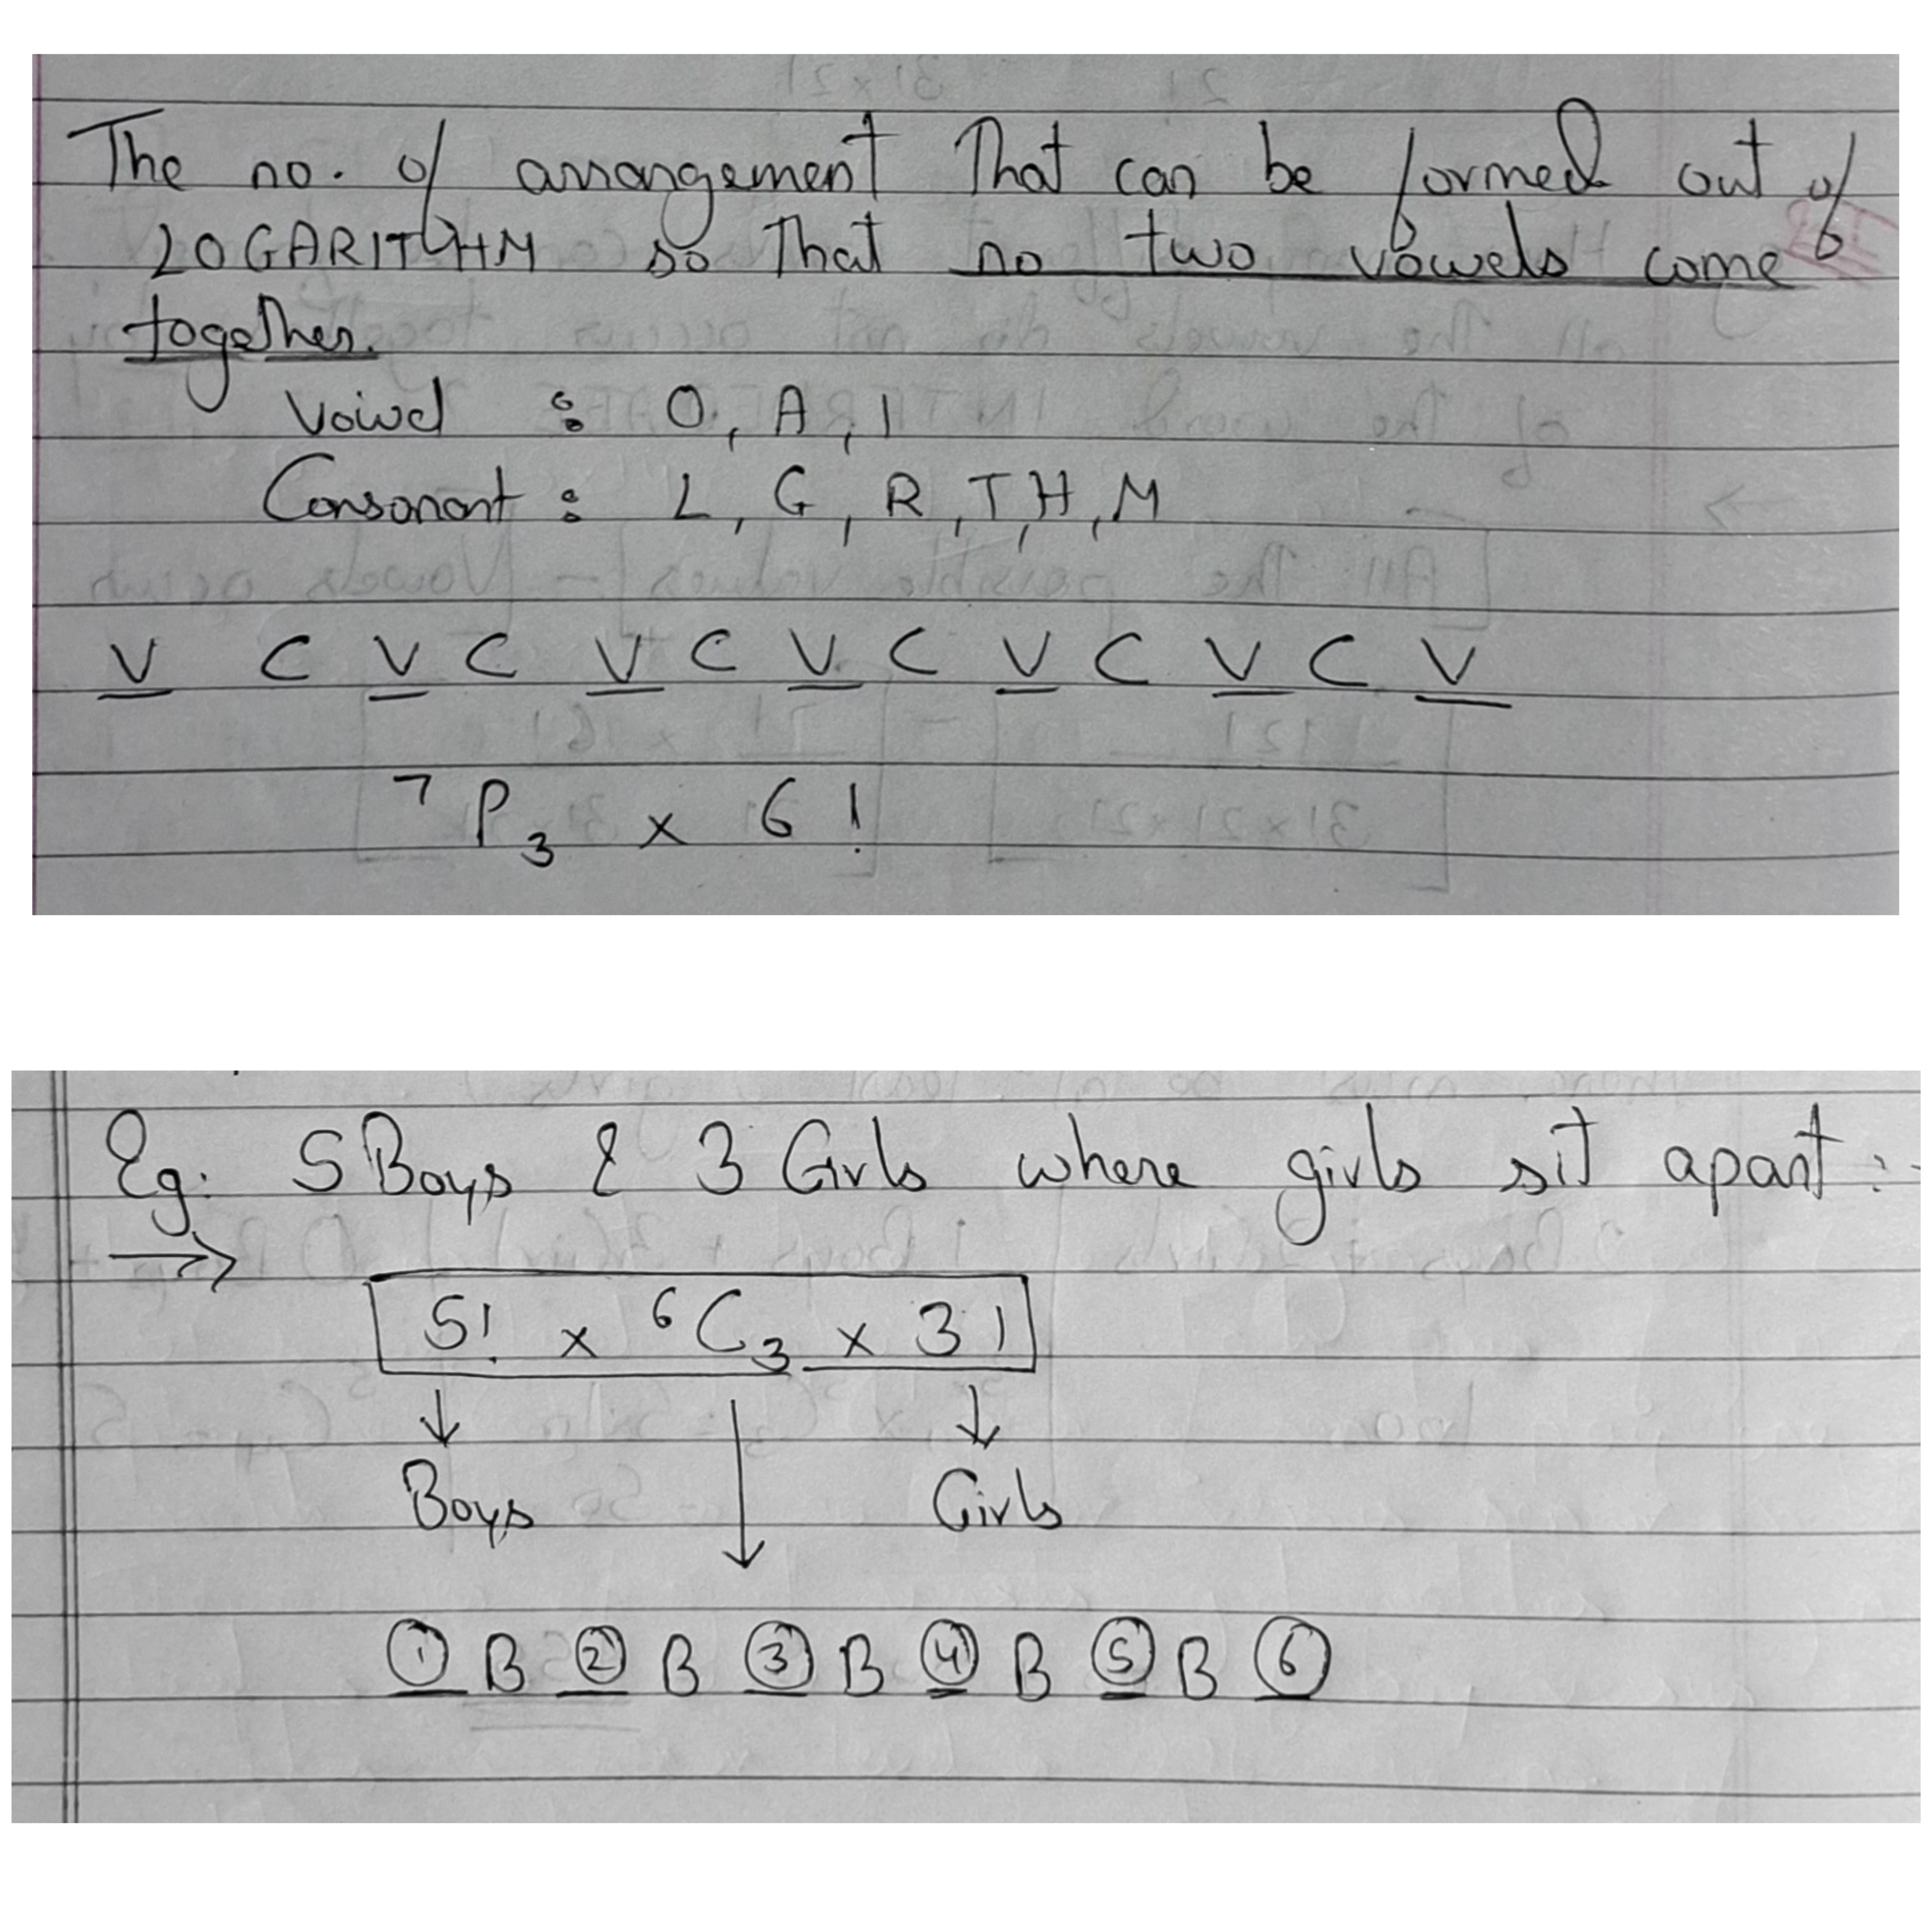 The no. of arrangement that can be formed out of
LOGARITHM so that no two vowels come
together.
Vowel : O, A, I
Consonant : L, G, R, T, H, M
V C V C V C V C V C V C V
⁷P₃ x 6!
Eg: 5 Boys & 3 Girls where girls sit apart:-
→
5! x ⁶C₃ x 3!
↓ ↓ ↓
Boys Girls
① B ② B ③ B ④ B ⑤ B ⑥